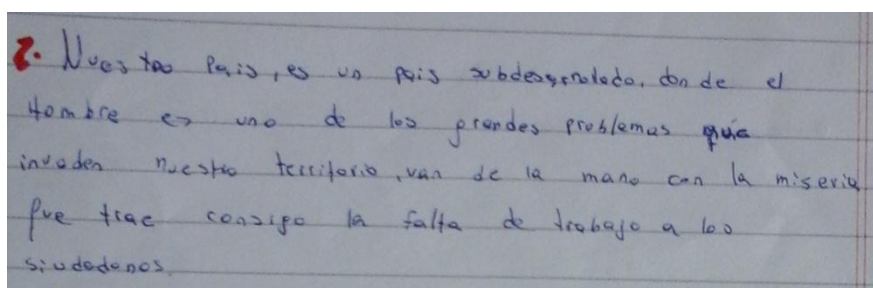 2. Nuestro Pais, es un pais subdesarrolado, donde el
Hombre es uno de los grandes problemas que
invaden nuestro territorio, van de la mano con la miseria
que trae consigo la falta de trabajo a los
siudadanos.